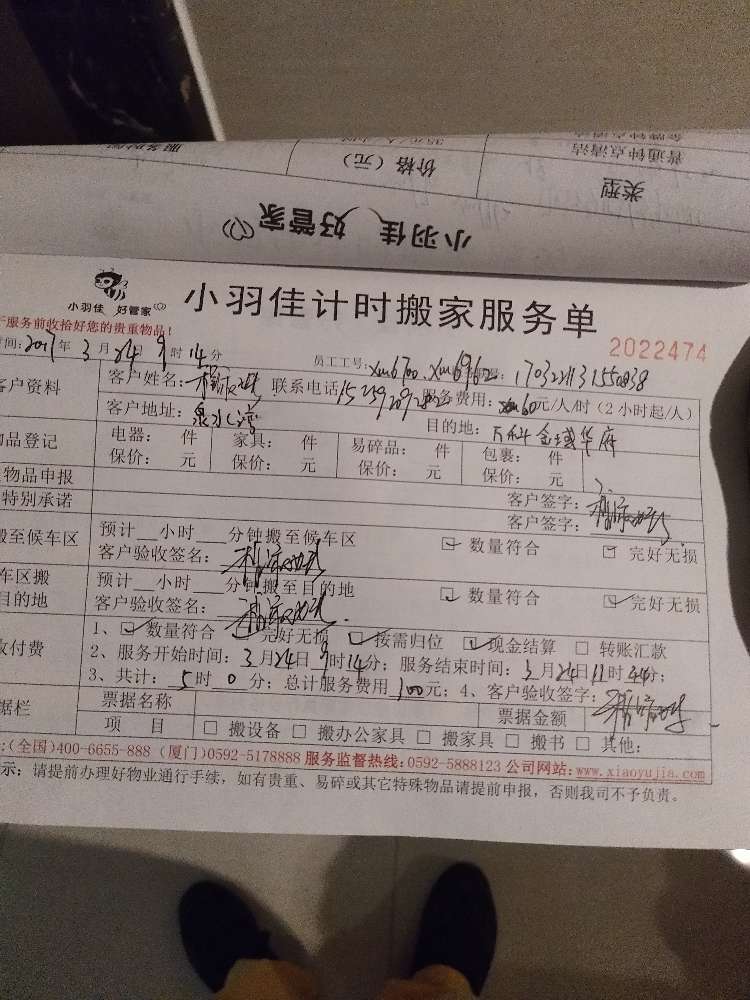 普通钟点清洁
类型
价格（元）
小羽佳 好管家
小羽佳 好管家
小羽佳计时搬家服务单
服务前收拾好您的贵重物品！
2022474
时间：2017年3月24日9时14分 员工工号：xm6700.xm6962 1703221131550838
客户资料 客户姓名： 联系电话 服务费用：60元/人/时（2小时起/人）
客户地址：泉水湾 目的地：万科金域华府
物品登记 电器： 件 家具： 件 易碎品： 件 包裹： 件
保价： 元 保价： 元 保价： 元 保价： 元
物品申报 客户签字：
特别承诺 客户签字：
搬至候车区 预计__小时__分钟搬至候车区 ☑ 数量符合 ☑ 完好无损
客户验收签名：
车区搬 预计__小时__分钟搬至目的地 ☑ 数量符合 ☑ 完好无损
目的地 客户验收签名：
收付费 1、☑ 数量符合 ☑ 完好无损 ☑ 按需归位 ☑ 现金结算 □ 转账汇款
2、服务开始时间：3月24日9时14分；服务结束时间：3月24日11时44分；
3、共计：5时0分；总计服务费用100元；4、客户验收签字：
据栏 票据名称 票据金额
项 目 □ 搬设备 □ 搬办公家具 □ 搬家具 □ 搬书 □ 其他：
：(全国)400-6655-888 (厦门)0592-5178888 服务监督热线：0592-5888123 公司网站：www.xiaoyujia.com
示：请提前办理好物业通行手续，如有贵重、易碎或其它特殊物品请提前申报，否则我司不予负责。